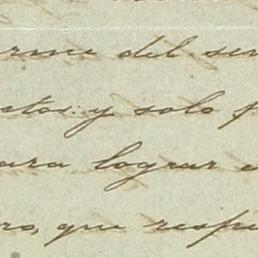 rme del ser
ctos y solo f
ara lograr e
ro, que respe